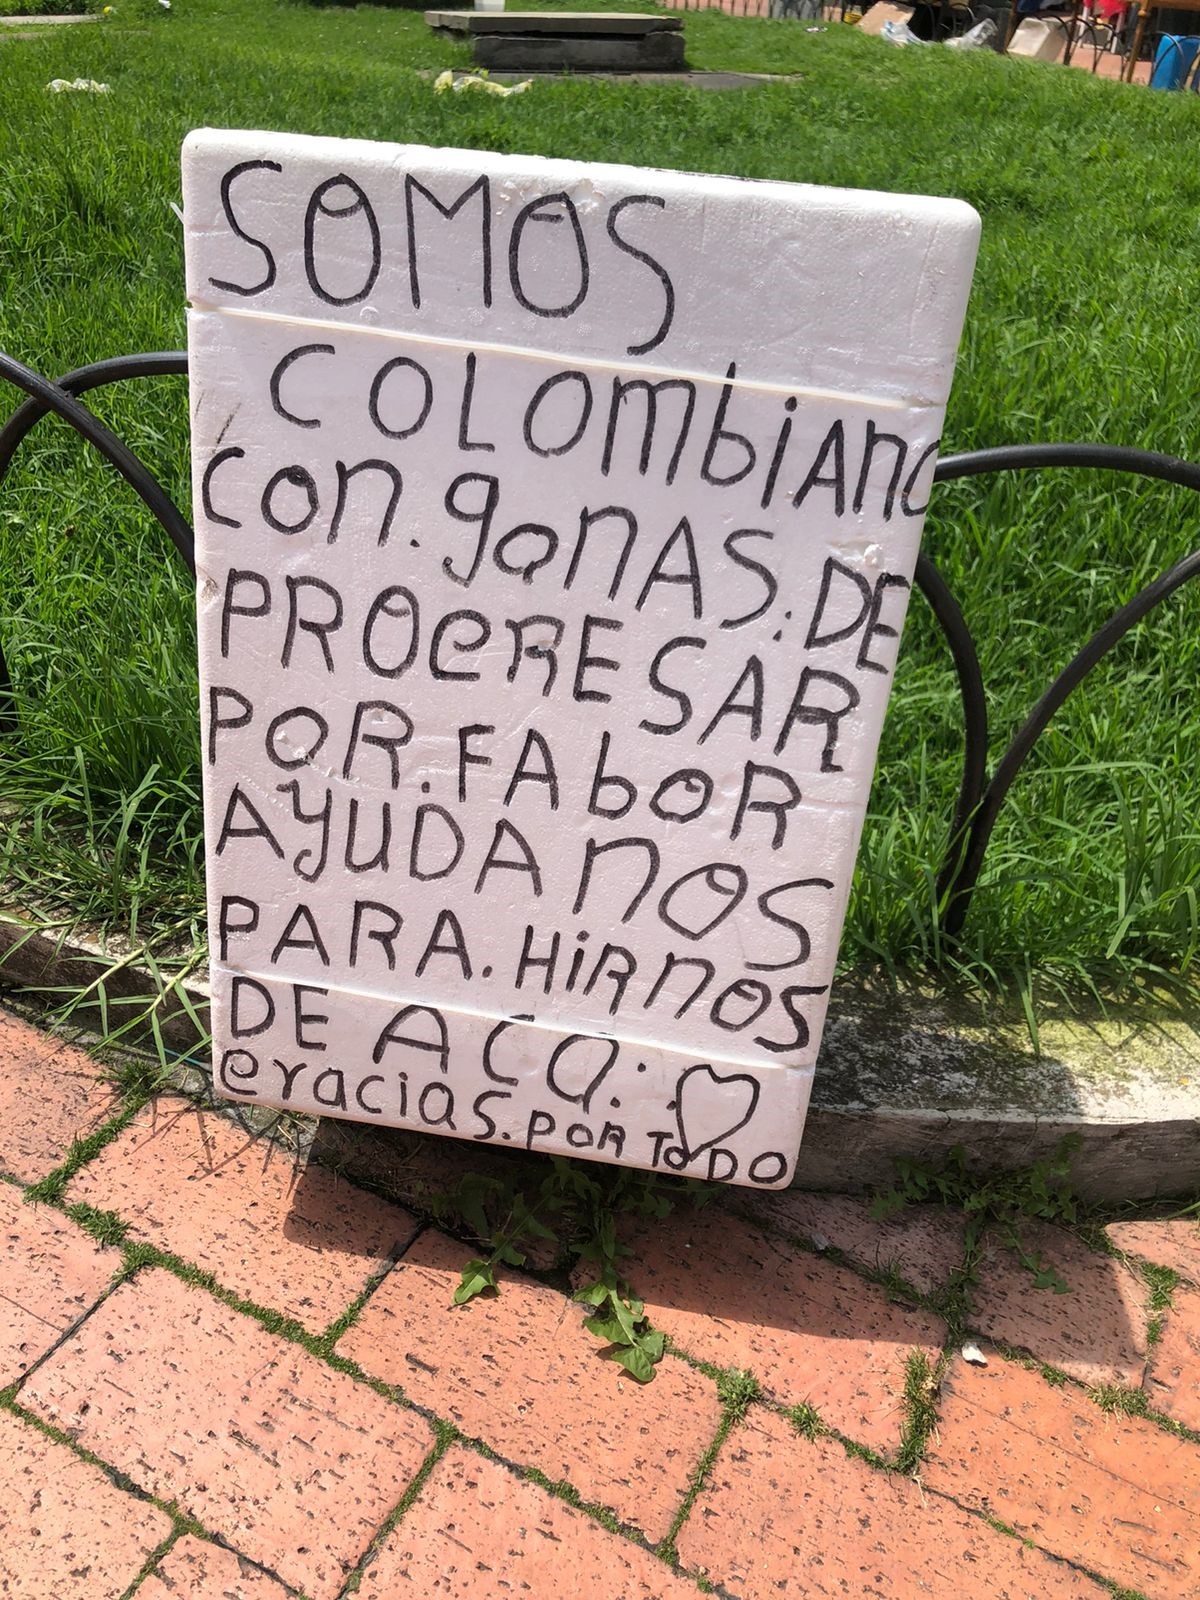 SOMOS
COLOmbiANO
CON. gaNAS: DE
PROGRESAR
POR. FAbOR
AyUDANOS
PARA. HiRNOS
DE ACA:
Gracias. POR TODO